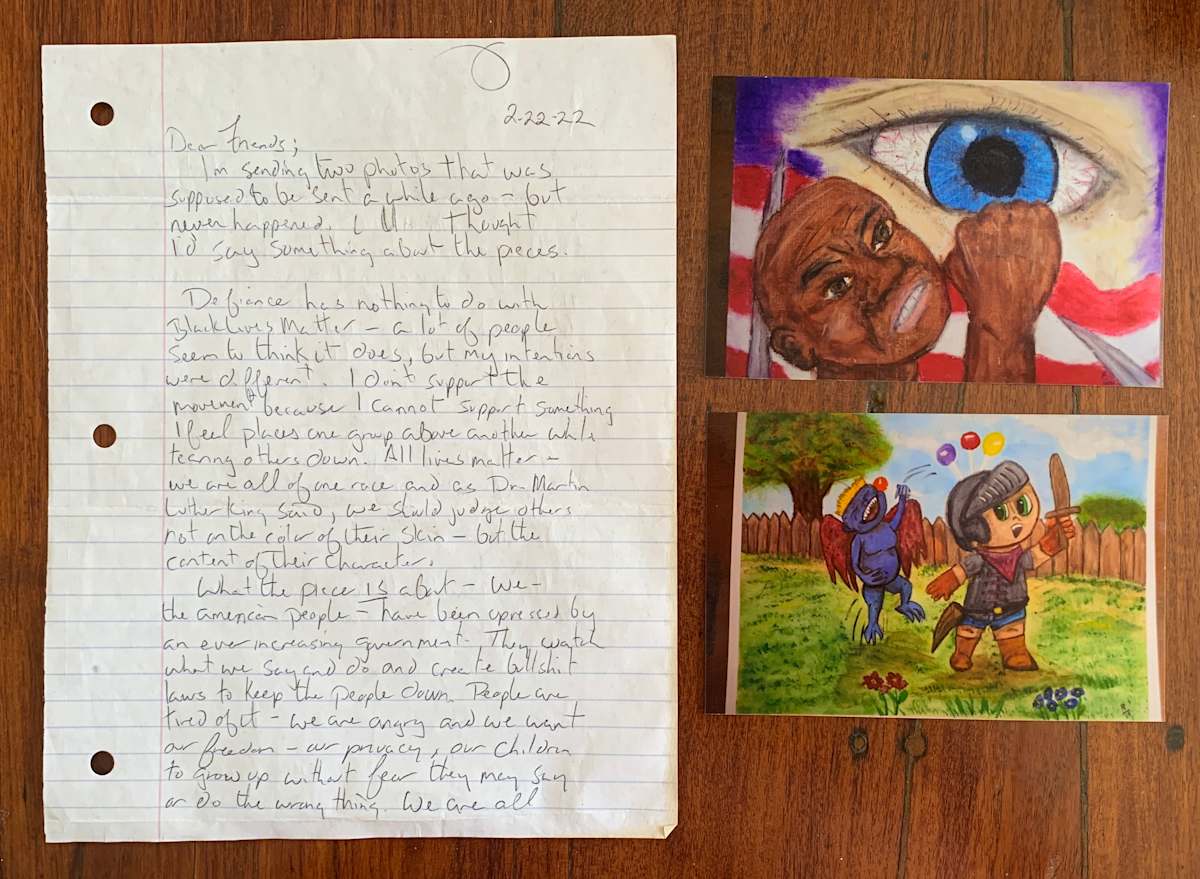 2-22-22
Dear Friends;
I'm sending two photos that was
supposed to be sent a while ago - but
never happened. thought
I'd say something about the pieces.
Defiance has nothing to do with
Black Lives Matter - a lot of people
seem to think it does, but my intentions
were different. I don't support the
movement because I cannot support something
I feel places one group above another while
tearing others down. All lives matter -
we are all of one race and as Dr. Martin
Luther King said, we should judge others
not on the color of their skin - but the
content of their character.
What the piece IS about - we -
the american people - have been opressed by
an ever increasing government. They watch
what we say and do and create bullshit
laws to keep the people down. People are
tired of it - we are angry and we want
our freedom - our privacy, our children
to grow up without fear they may say
or do the wrong thing. We are all